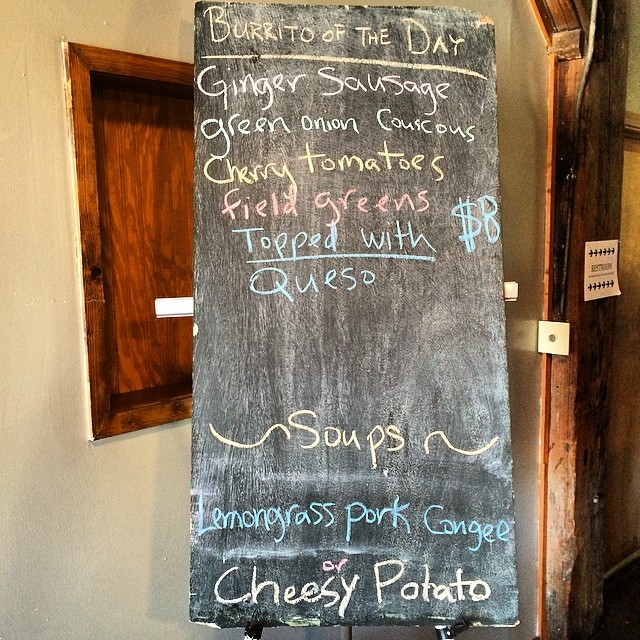 BURRITO OF THE DAY
Ginger Sausage
green onion Couscous
Cherry tomatoes
field greens
Topped with $8
Queso
Soups
Lemongrass pork Congee
or
Cheesy Potato
RESTROOM